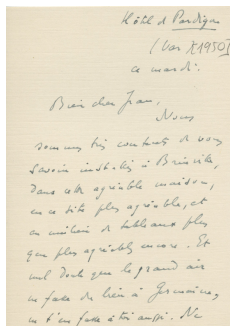 Hôtel de Pardigon
(Var X 1950)
ce mardi.
Bien cher Jean,
Nous
sommes très contents de vous
savoir installés à Brinville,
dans cette agréable maison,
en ce site plus agréable, et
au milieu de tableaux plus
que plus agréables encore. Et
nul doute que le grand air
ne fasse du bien à Germaine,
ne t'en fasse à toi aussi. Ne